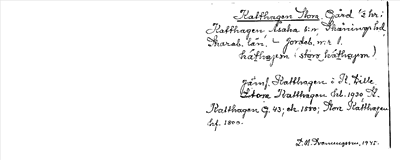 Katthagen Stora. Gård ½ hr i
Katthagen Åsaka s:n Skånings hd
Skarab. län. Jordeb. nr 1.
kathagen (stora kathagen)
jämf. Katthagen i St. Lille
Stora Katthagen hd. 1930 K.
Katthagen G. 43; ek. 1880; Stora Katthagen
hf. 1800.
1945.